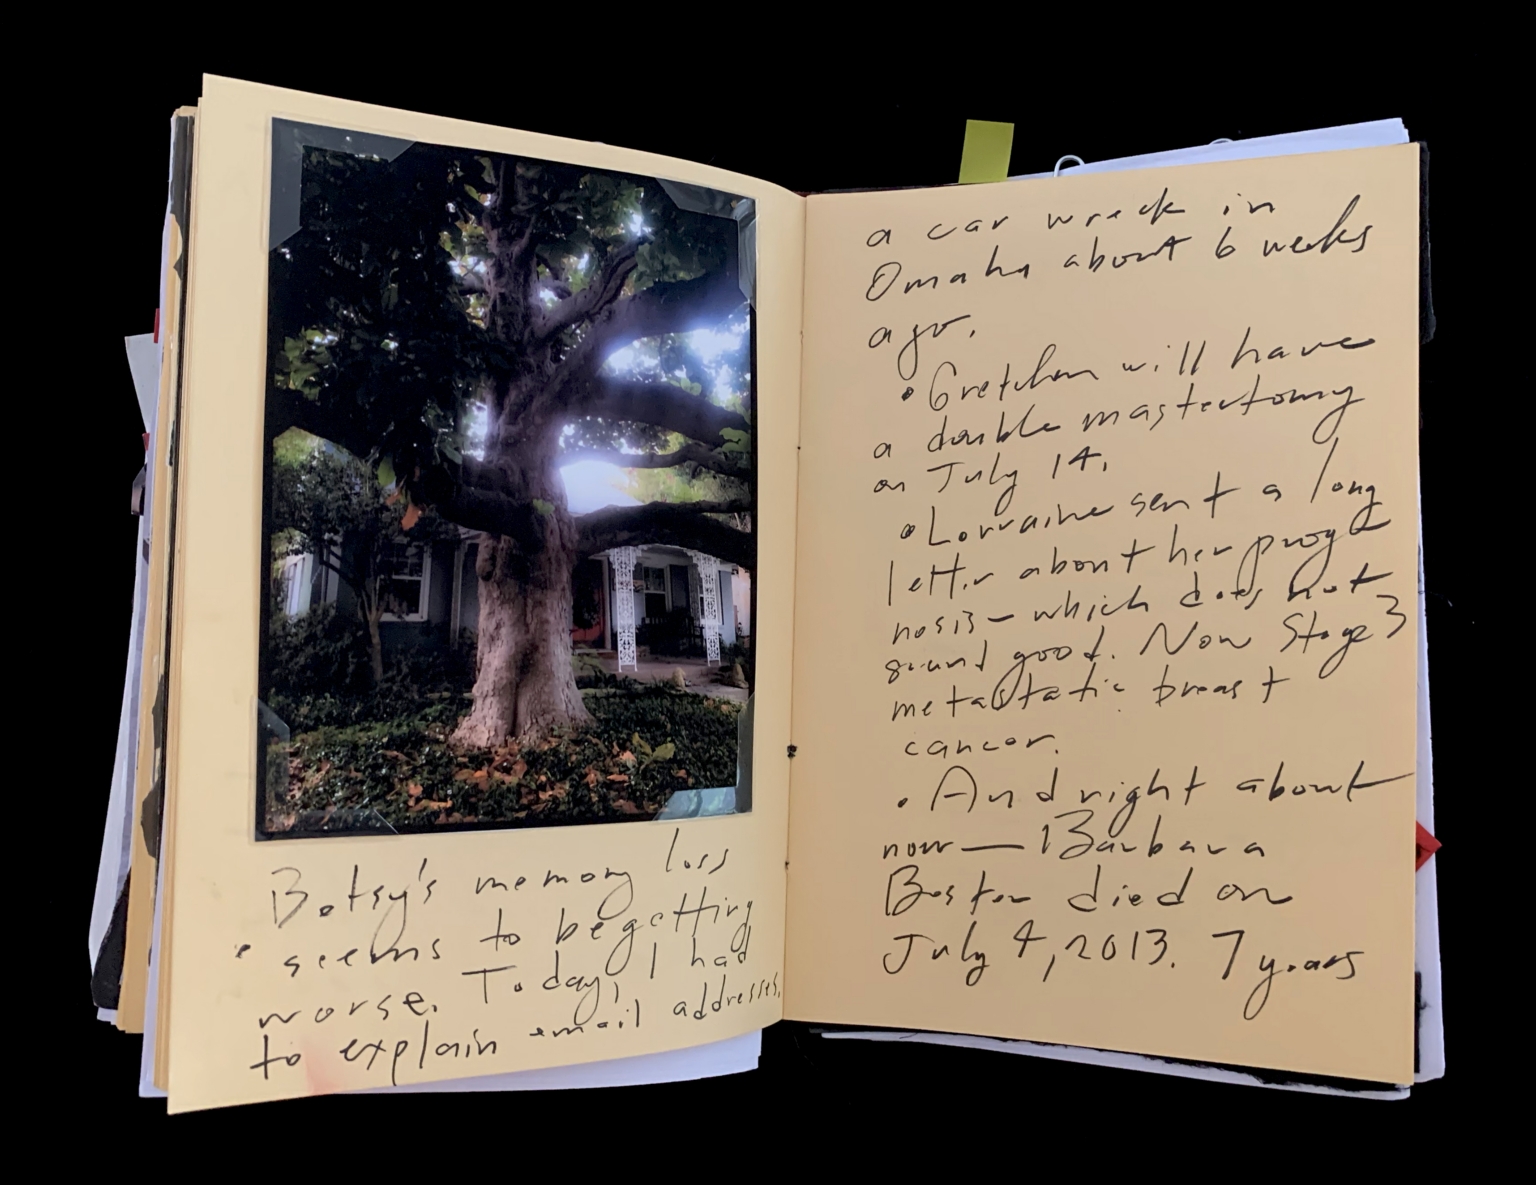 Betsy's memory loss
• seems to be getting
worse. Today, I had
to explain email addresses.
a car wreck in
Omaha about 6 weeks
ago.
• Gretchen will have
a double mastectomy
on July 14.
• Lorraine sent a long
letter about her prog-
nosis – which does not
sound good. Now Stage 3
metastatic breast
cancer.
• And right about
now — Barbara
Boston died on
July 4, 2013. 7 years